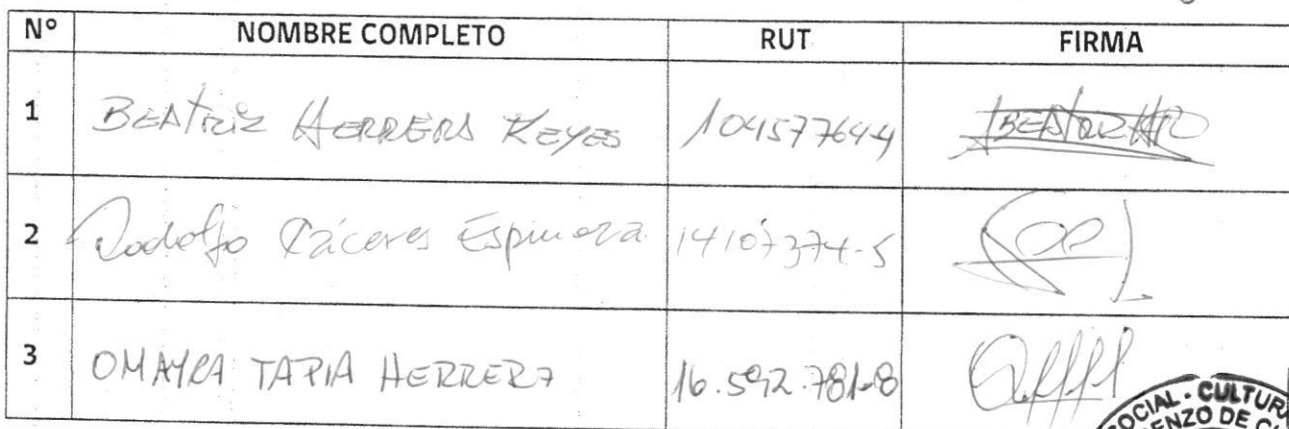 N° NOMBRE COMPLETO RUT FIRMA
1 BEATRIZ HERRERA REYES 104577644 BEATRIZ
2 Rodolfo Cáceres Espinoza 14107374-5
3 OMAYRA TAPIA HERRERA 16.592.781-8
SOCIAL - CULTURA
ENZO DE